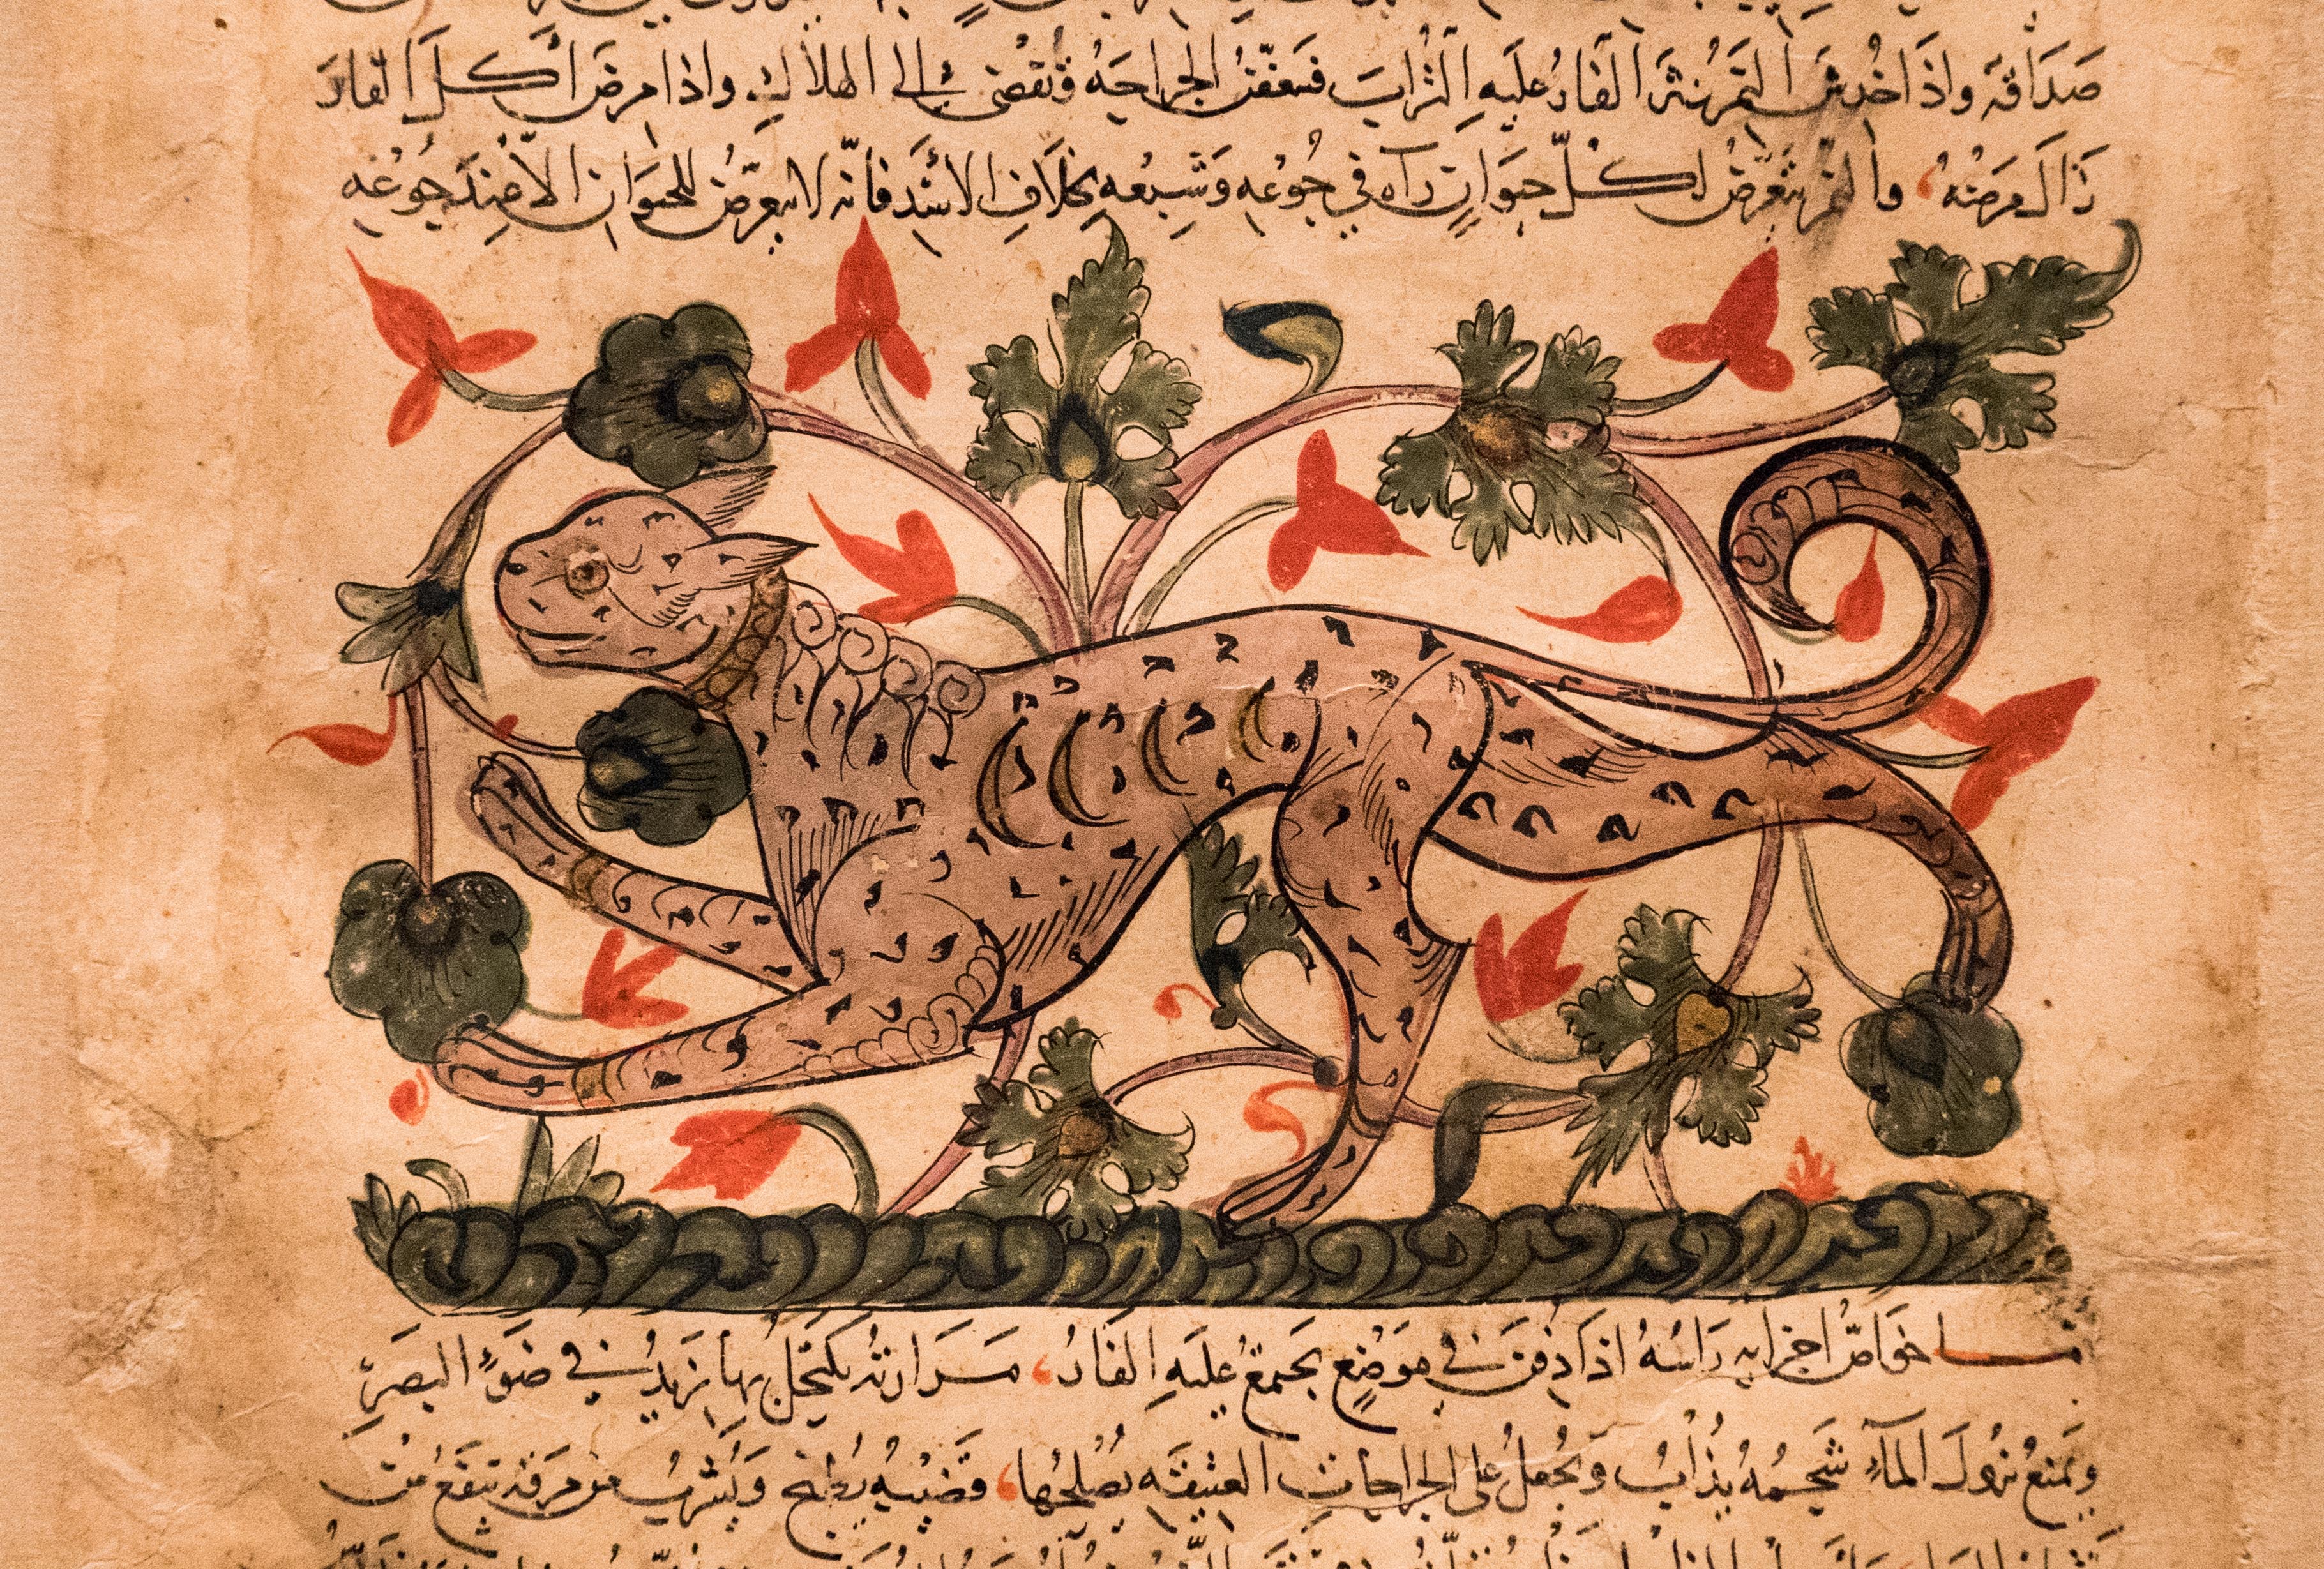 صَدَاقة وَاذَا خُدِشَ النَّمِرُ نَثَرَ الفَارُ عَلَيهِ التُرابَ فتعَفّنُ الجراحَةُ وتُفضى الى الهلاك واذا مرض أكل الفار
زَالَ مَرَضُهُ، والنمر يتَعَرّضُ لكُلّ حيَوَانٍ رآه في جُوعِهِ وَشَبَعِهِ بخلافِ الاسَدِ فانّه لا يتعرّض للحيَوان الا عِندَ جُوعِهِ
خَوَاصُّ اجزايه رَاسُهُ اذا دُفِنَ في مَوضِعٍ يجتمعُ عليَهِ الفَارُ، مَرَارتهُ يكتحَلُ بها يَزيدُ في ضَوءِ البَصَرِ
ويَمنَعُ نزُولَ المآءِ شحمُهُ يُذابُ ويُجعَلُ على الجراحاتِ العتيقة يُصلحُها، وقضيبُه يُطبخ ويُشربُ من مرقه ينفَعُ مِنْ